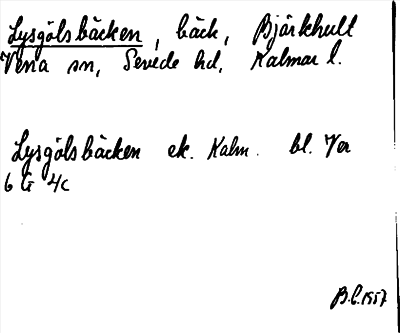 Lysgölsbäcken, bäck, Bjärkhult
Vena sn, Sevede hd, Kalmar l.
Lysgölsbäcken ek. Kalm. bl. Ver
6 G 4c
B.L. 1957